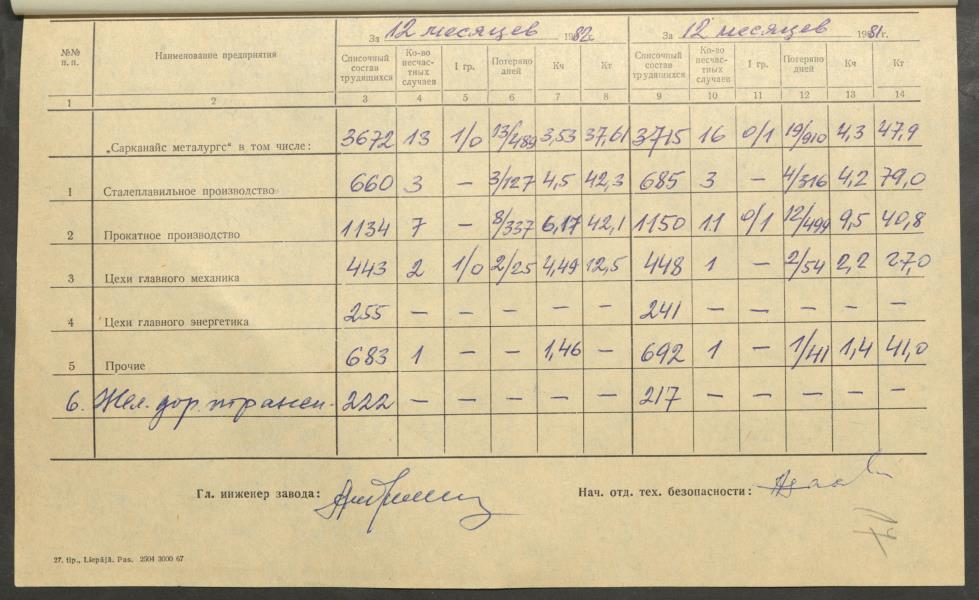 За 12 месяцев 1982 г. За 12 месяцев 1981 г.
№№ п. п. Наименование предприятия Списочный состав трудящихся Ко-во несчастных случаев I гр. Потеряно дней Кч Кт Списочный состав трудящихся Ко-во несчастных случаев I гр. Потеряно дней Кч Кт
1 2 3 4 5 6 7 8 9 10 11 12 13 14
„Сарканайс металургс“ в том числе: 3672 13 1/0 13/489 3,53 37,61 3715 16 0/1 19/910 4,3 47,9
1 Сталеплавильное производство 660 3 — 3/127 4,5 42,3 685 3 — 4/316 4,2 79,0
2 Прокатное производство 1134 7 — 8/337 6,17 42,1 1150 11 0/1 12/499 9,5 40,8
3 Цехи главного механика 443 2 1/0 2/25 4,49 12,5 448 1 — 2/54 2,2 27,0
4 Цехи главного энергетика 255 — — — — — 241 — — — — —
5 Прочие 683 1 — — 1,46 — 692 1 — 1/41 1,4 41,0
6. Жел. дор. трансп. 222 — — — — — 217 — — — — —
Гл. инженер завода: Нач. отд. тех. безопасности:
27. tip., Liepājā. Pas. 2504 3000 67